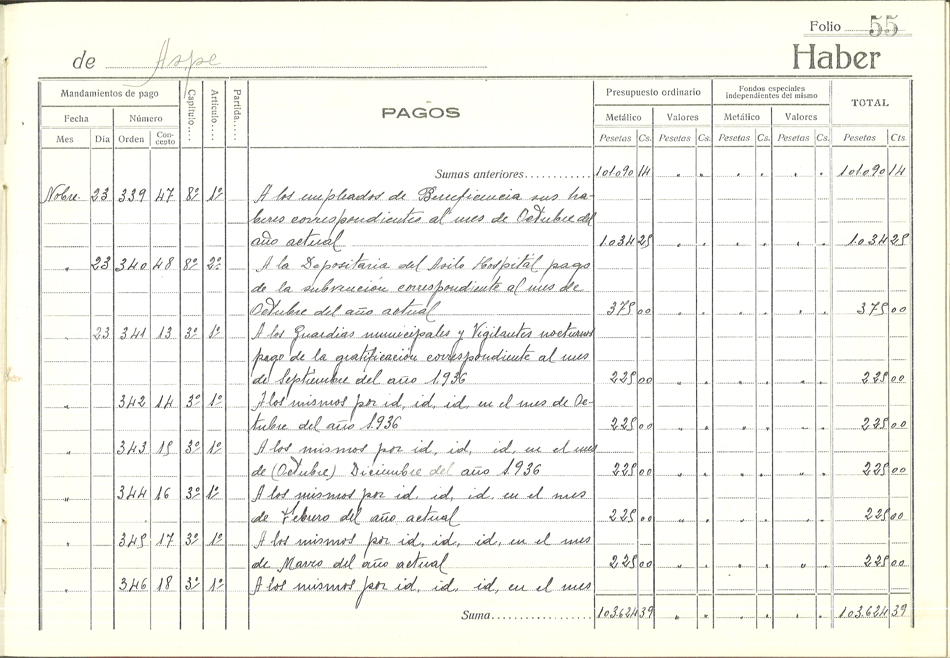 Folio 55
de Aspe
Haber
Mandamientos de pago
Fecha Número
Mes Día Orden Concepto
Capítulo.... Artículo.... Partida....
PAGOS
Presupuesto ordinario
Metálico Valores
Pesetas Cs. Pesetas Cs.
Fondos especiales
independientes del mismo
Metálico Valores
Pesetas Cs. Pesetas Cs.
TOTAL
Pesetas Cts.
Sumas anteriores............ 101.090 14 " " " " " " 101.090 14
Nobre. 23 339 47 8º 1º A los empleados de Beneficencia sus ha-
beres correspondientes al mes de Octubre del
año actual 1.034 25 " " " " " " 1.034 25
" 23 340 48 8º 2º A la Depositaria del Asilo Hospital pago
de la subvención correspondiente al mes de
Octubre del año actual 375 00 " " " " " " 375 00
" 23 341 13 3º 1º A los Guardias municipales y Vigilantes nocturnos
pago de la gratificación correspondiente al mes
de Septiembre del año 1.936 225 00 " " " " " " 225 00
" 342 14 3º 1º A los mismos por id, id, id, en el mes de Oc-
tubre del año 1.936 225 00 " " " " " " 225 00
" 343 15 3º 1º A los mismos por id, id, id, en el mes
de (Octubre) Diciembre del año 1936 225 00 " " " " " " 225 00
" 344 16 3º 1º A los mismos por id, id, id, en el mes
de Febrero del año actual 225 00 " " " " " " 225 00
" 345 17 3º 1º A los mismos por id, id, id, en el mes
de Marzo del año actual 225 00 " " " " " " 225 00
" 346 18 3º 1º A los mismos por id, id, id, en el mes
Suma.................. 103.624 39 " " " " " " 103.624 39